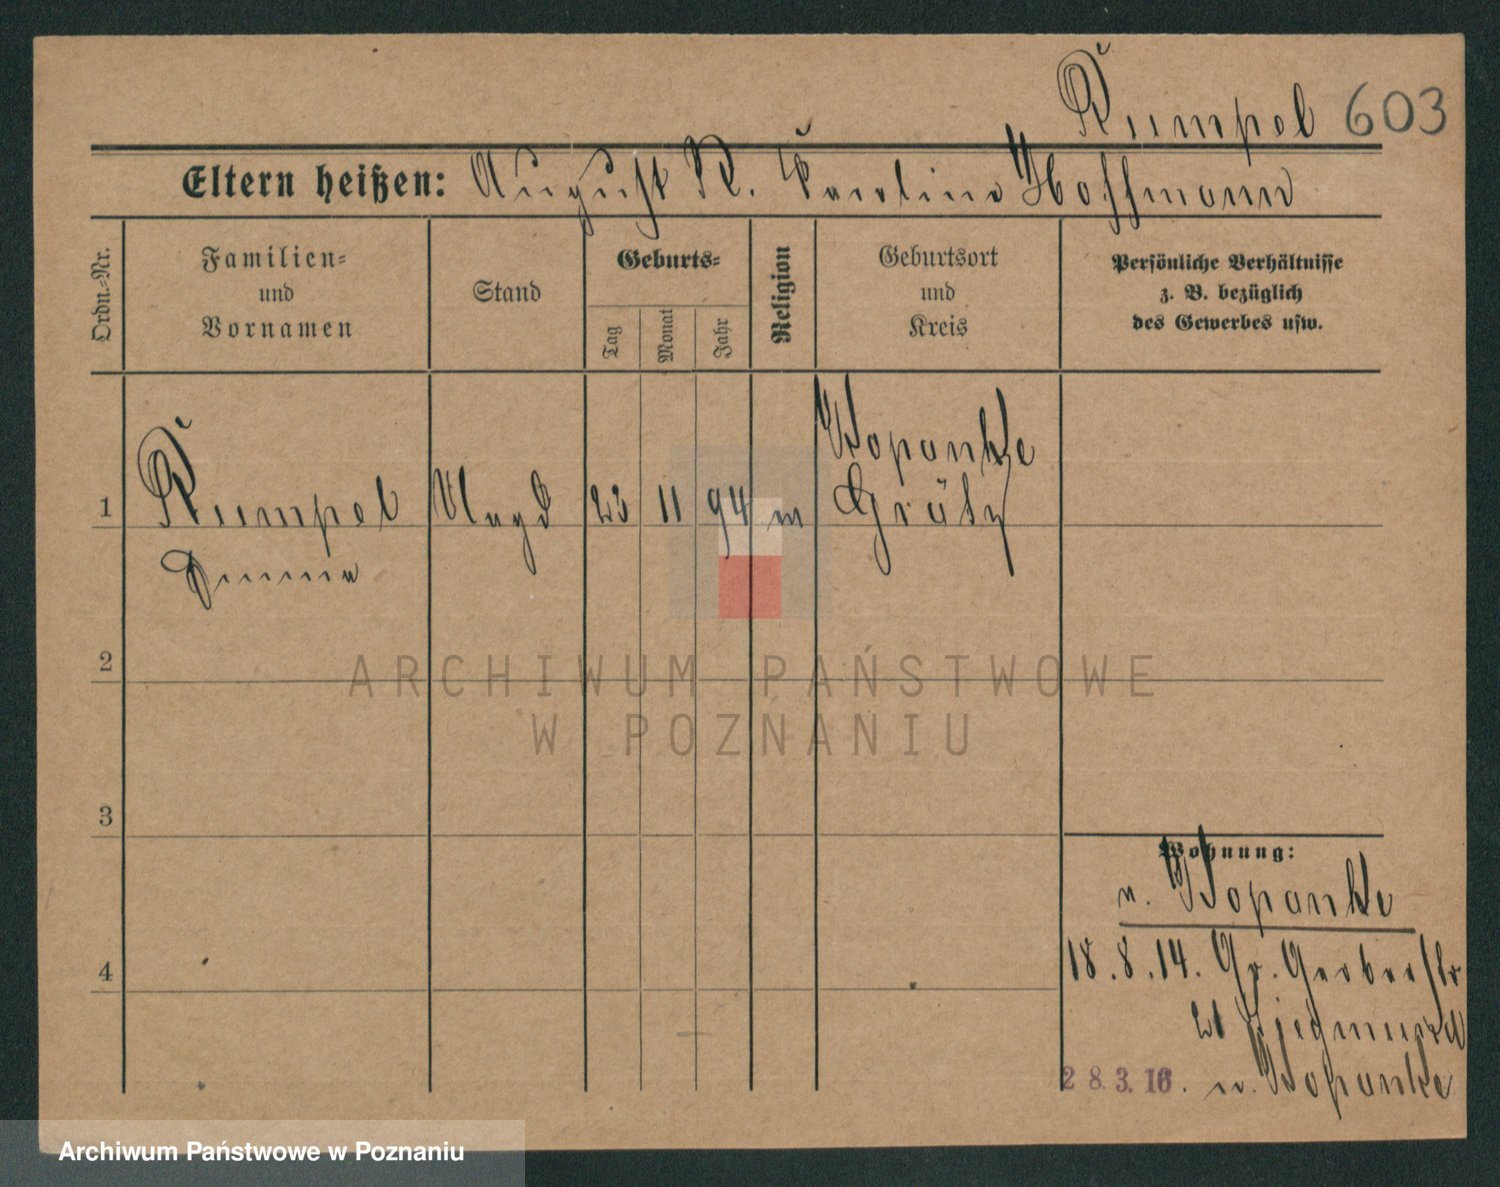 Rumpel 603
Eltern heißen: August R. Karoline Hoffmann
Ordn.-Nr.
Familien-
und
Vornamen
Stand
Geburts-
Tag
Monat
Jahr
Religion
Geburtsort
und
Kreis
Persönliche Verhältnisse
z. B. bezüglich
des Gewerbes usw.
1
Rumpel
Magd
23 11 94
Wopanke
Grätz
2
ARCHIWUM PAŃSTWOWE
W POZNANIU
3
Wohnung:
n. Wopanke
4
18.8.14. Gr. Gerberstr
21
28.3.16. n. Wopanke
Archiwum Państwowe w Poznaniu